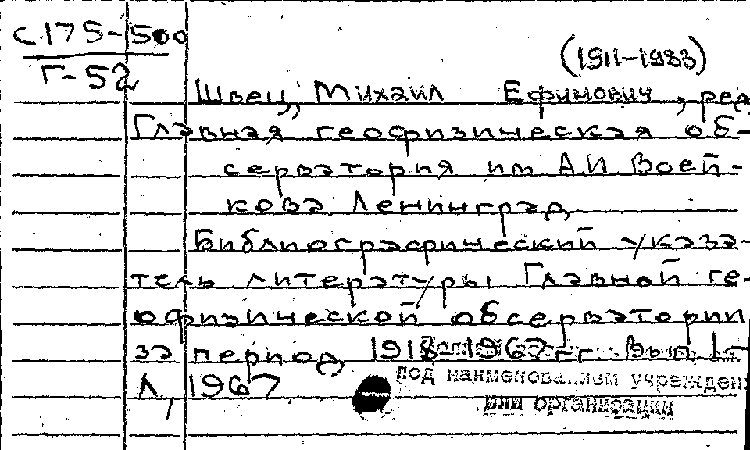 С175-500
Г-52
(1911-1983)
Швец, Михаил Ефимович, ред
Главная геофизическая об-
серватория им А И Воей-
кова Ленинград
Библиографический указа-
тель литературы Главной ге-
офизической обсерватории
за период 1918-1967 гг. Вып 1-
Л, 1967
под наименованием учрежден
или организации